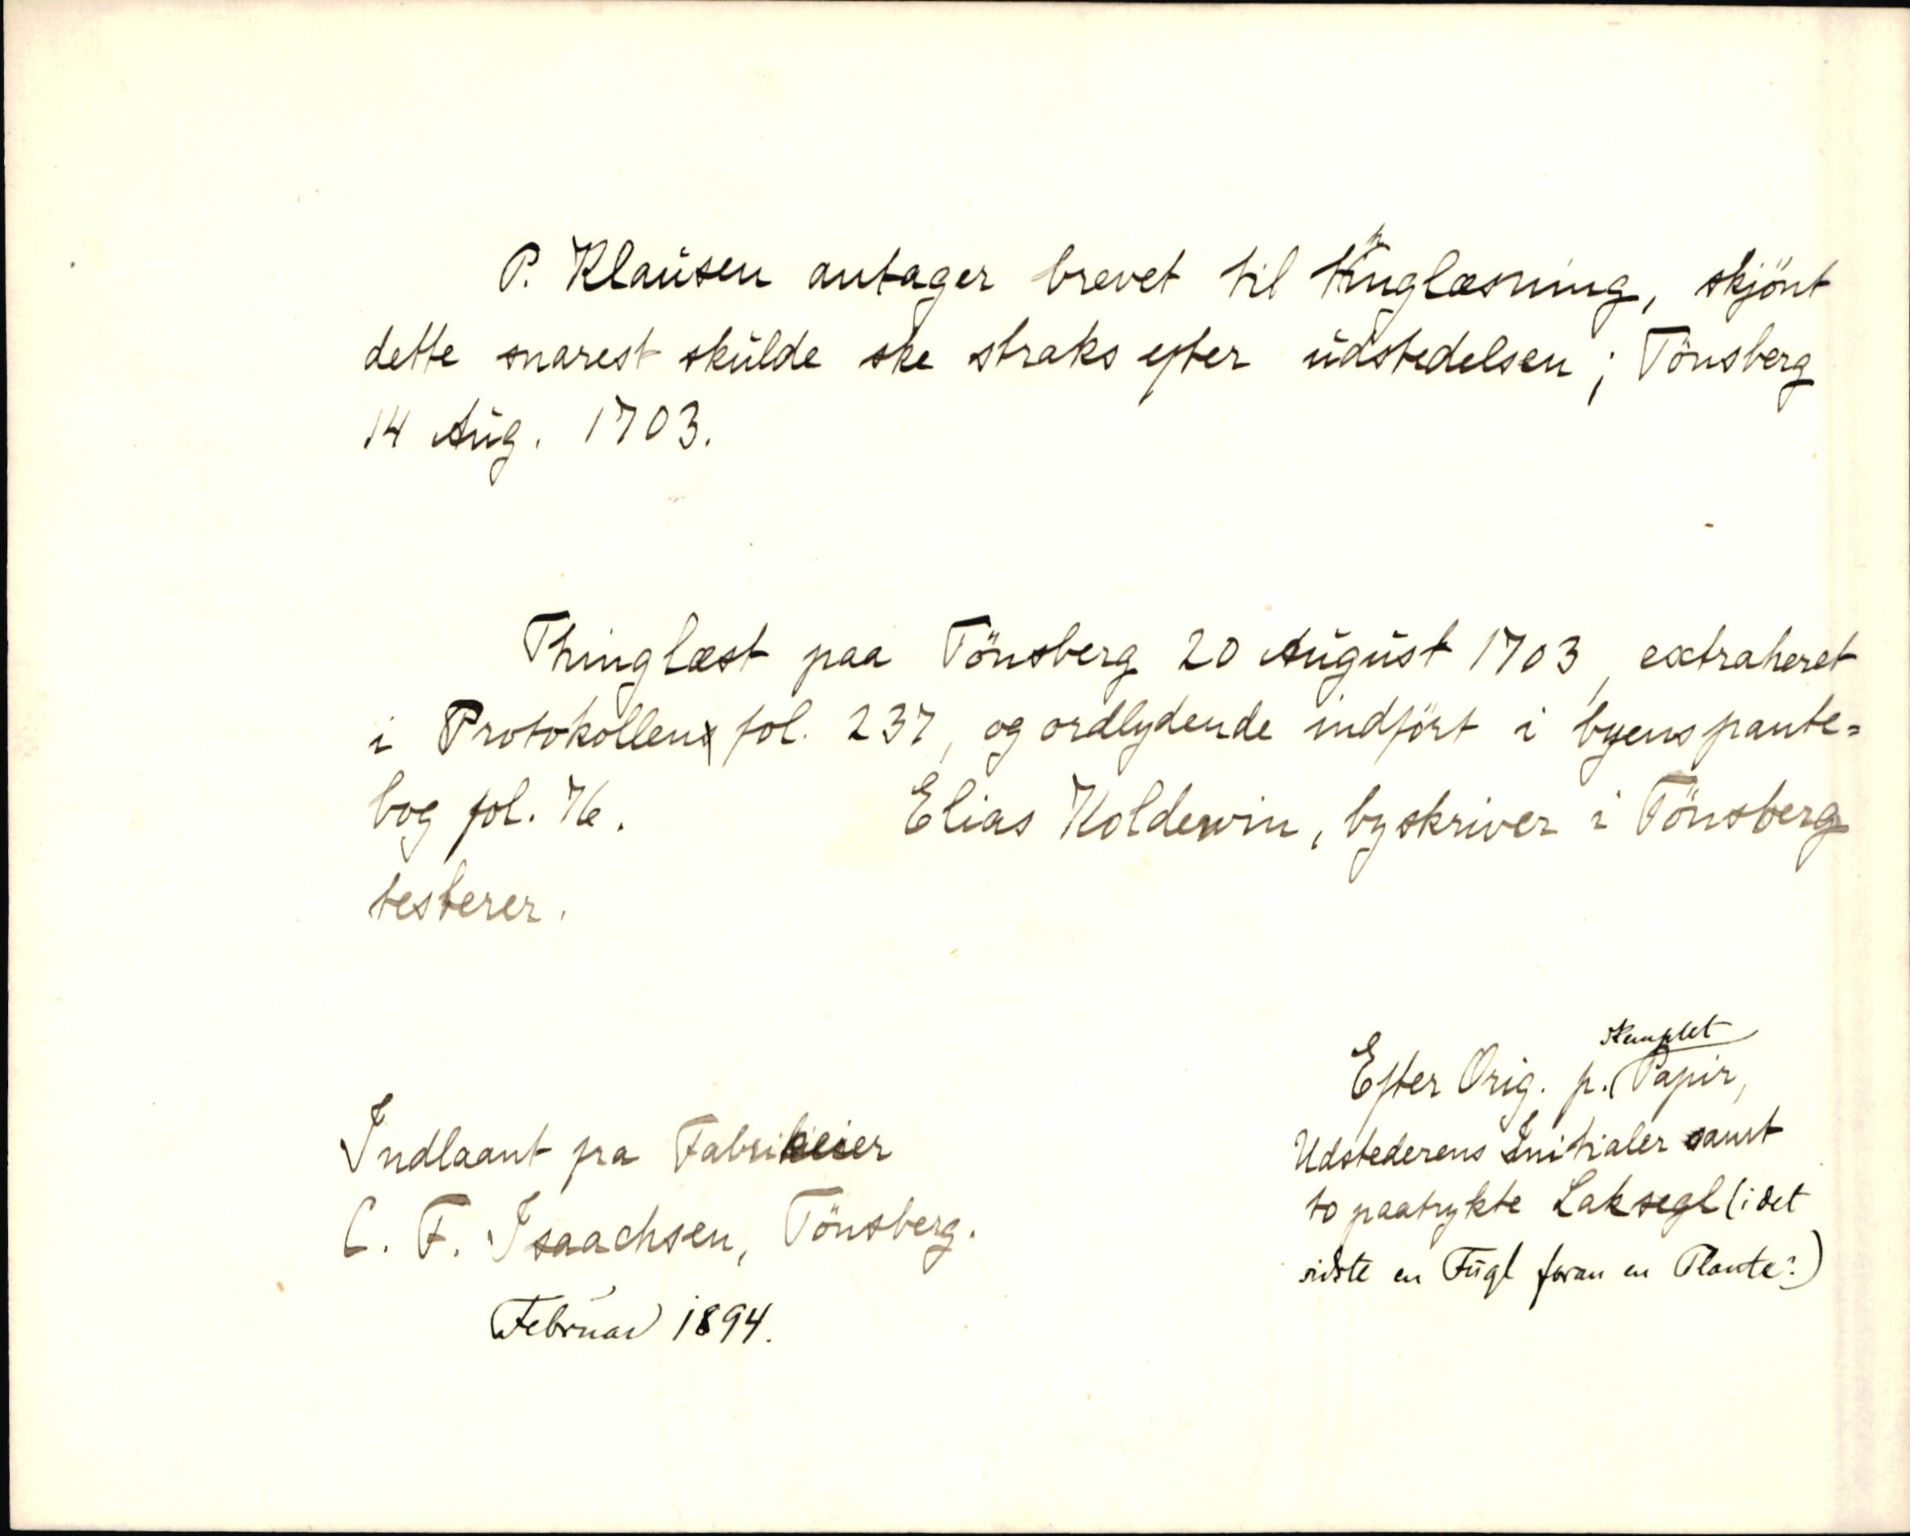 P. Klausen antager brevet til thinglæsning, skjönt
dette snarest skulde ske straks efter udstedelsen; Tönsberg
14 Aug. 1703.
Thinglæst paa Tönsberg 20 August 1703, extraheret
i Protokollen fol. 237, og ordlydende indfört i byens pante=
bog fol. 76. Elias Koldewin, byskriver i Tönsberg
testerer.
Indlaant fra Fabrikeier
C. F. Isaachsen, Tönsberg.
Februar 1894.
Efter Orig. p. stemplet Papir,
Udstederens Initialer samt
to paatrykte Laksegl (i det
sidste en Fugl foran en Plante?)